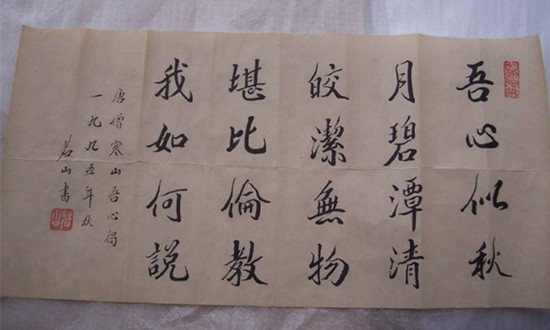 吾心似秋
月碧潭清
皎潔無物
堪比倫教
我如何說
唐僧寒山吾心偈
一九九五年秋
茗山書